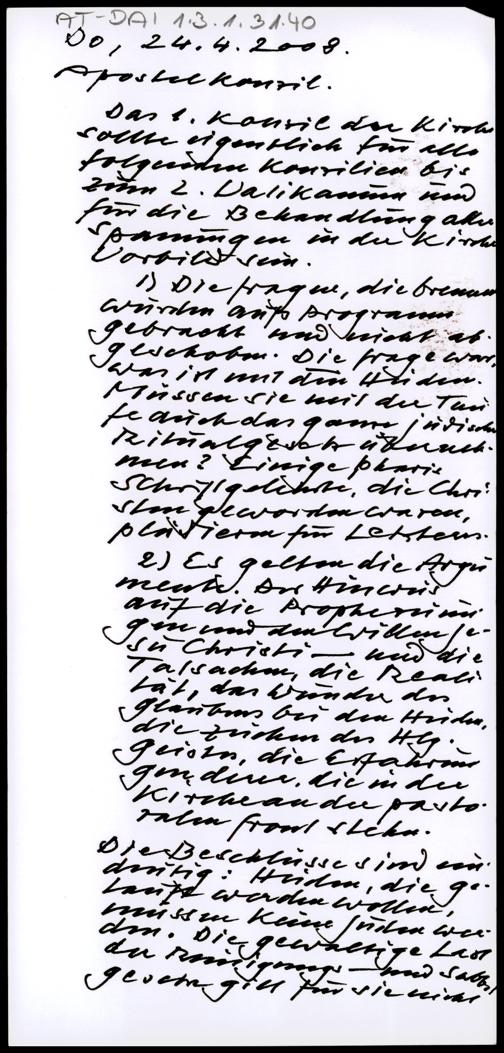 AT-DAI 1.3.1.31.40
Do, 24.4.2008.
Apostelkonzil.
Das 1. Konzil der Kirche
sollte eigentlich für alle
folgenden Konzilien bis
zum 2. Vatikanum und
für die Behandlung aller
Spannungen in der Kirche
Vorbild sein.
1) Die Fragen, die brennen
wurden aufs Programm
gebracht und nicht ab-
geschoben. Die Frage war,
was ist mit den Heiden.
Müssen sie mit der Tau
fe auch das ganze jüdische
Ritualgesetz überneh-
men? Einige pharis.
Schriftgelehrte, die Chri-
sten geworden waren,
plädieren für Letzteres.
2) Es gelten die Argu
mente. Der Hinweis
auf die Prophezeiun
gen und den Willen Je-
su Christi – und die
Tatsachen, die Reali
tät, das Wunder des
Glaubens bei den Heiden,
die Zeichen des Hlg.
Geistes, die Erfahrung
gen derer, die in der
Kirche an der pasto-
ralen Front stehn.
Die Beschlüsse sind ein
deutig: Heiden, die ge-
tauft werden wollen,
müssen keine Juden wer-
den. Die gewaltige Last
der Reinigungs- und Sabbat
gesetze gilt für sie nicht